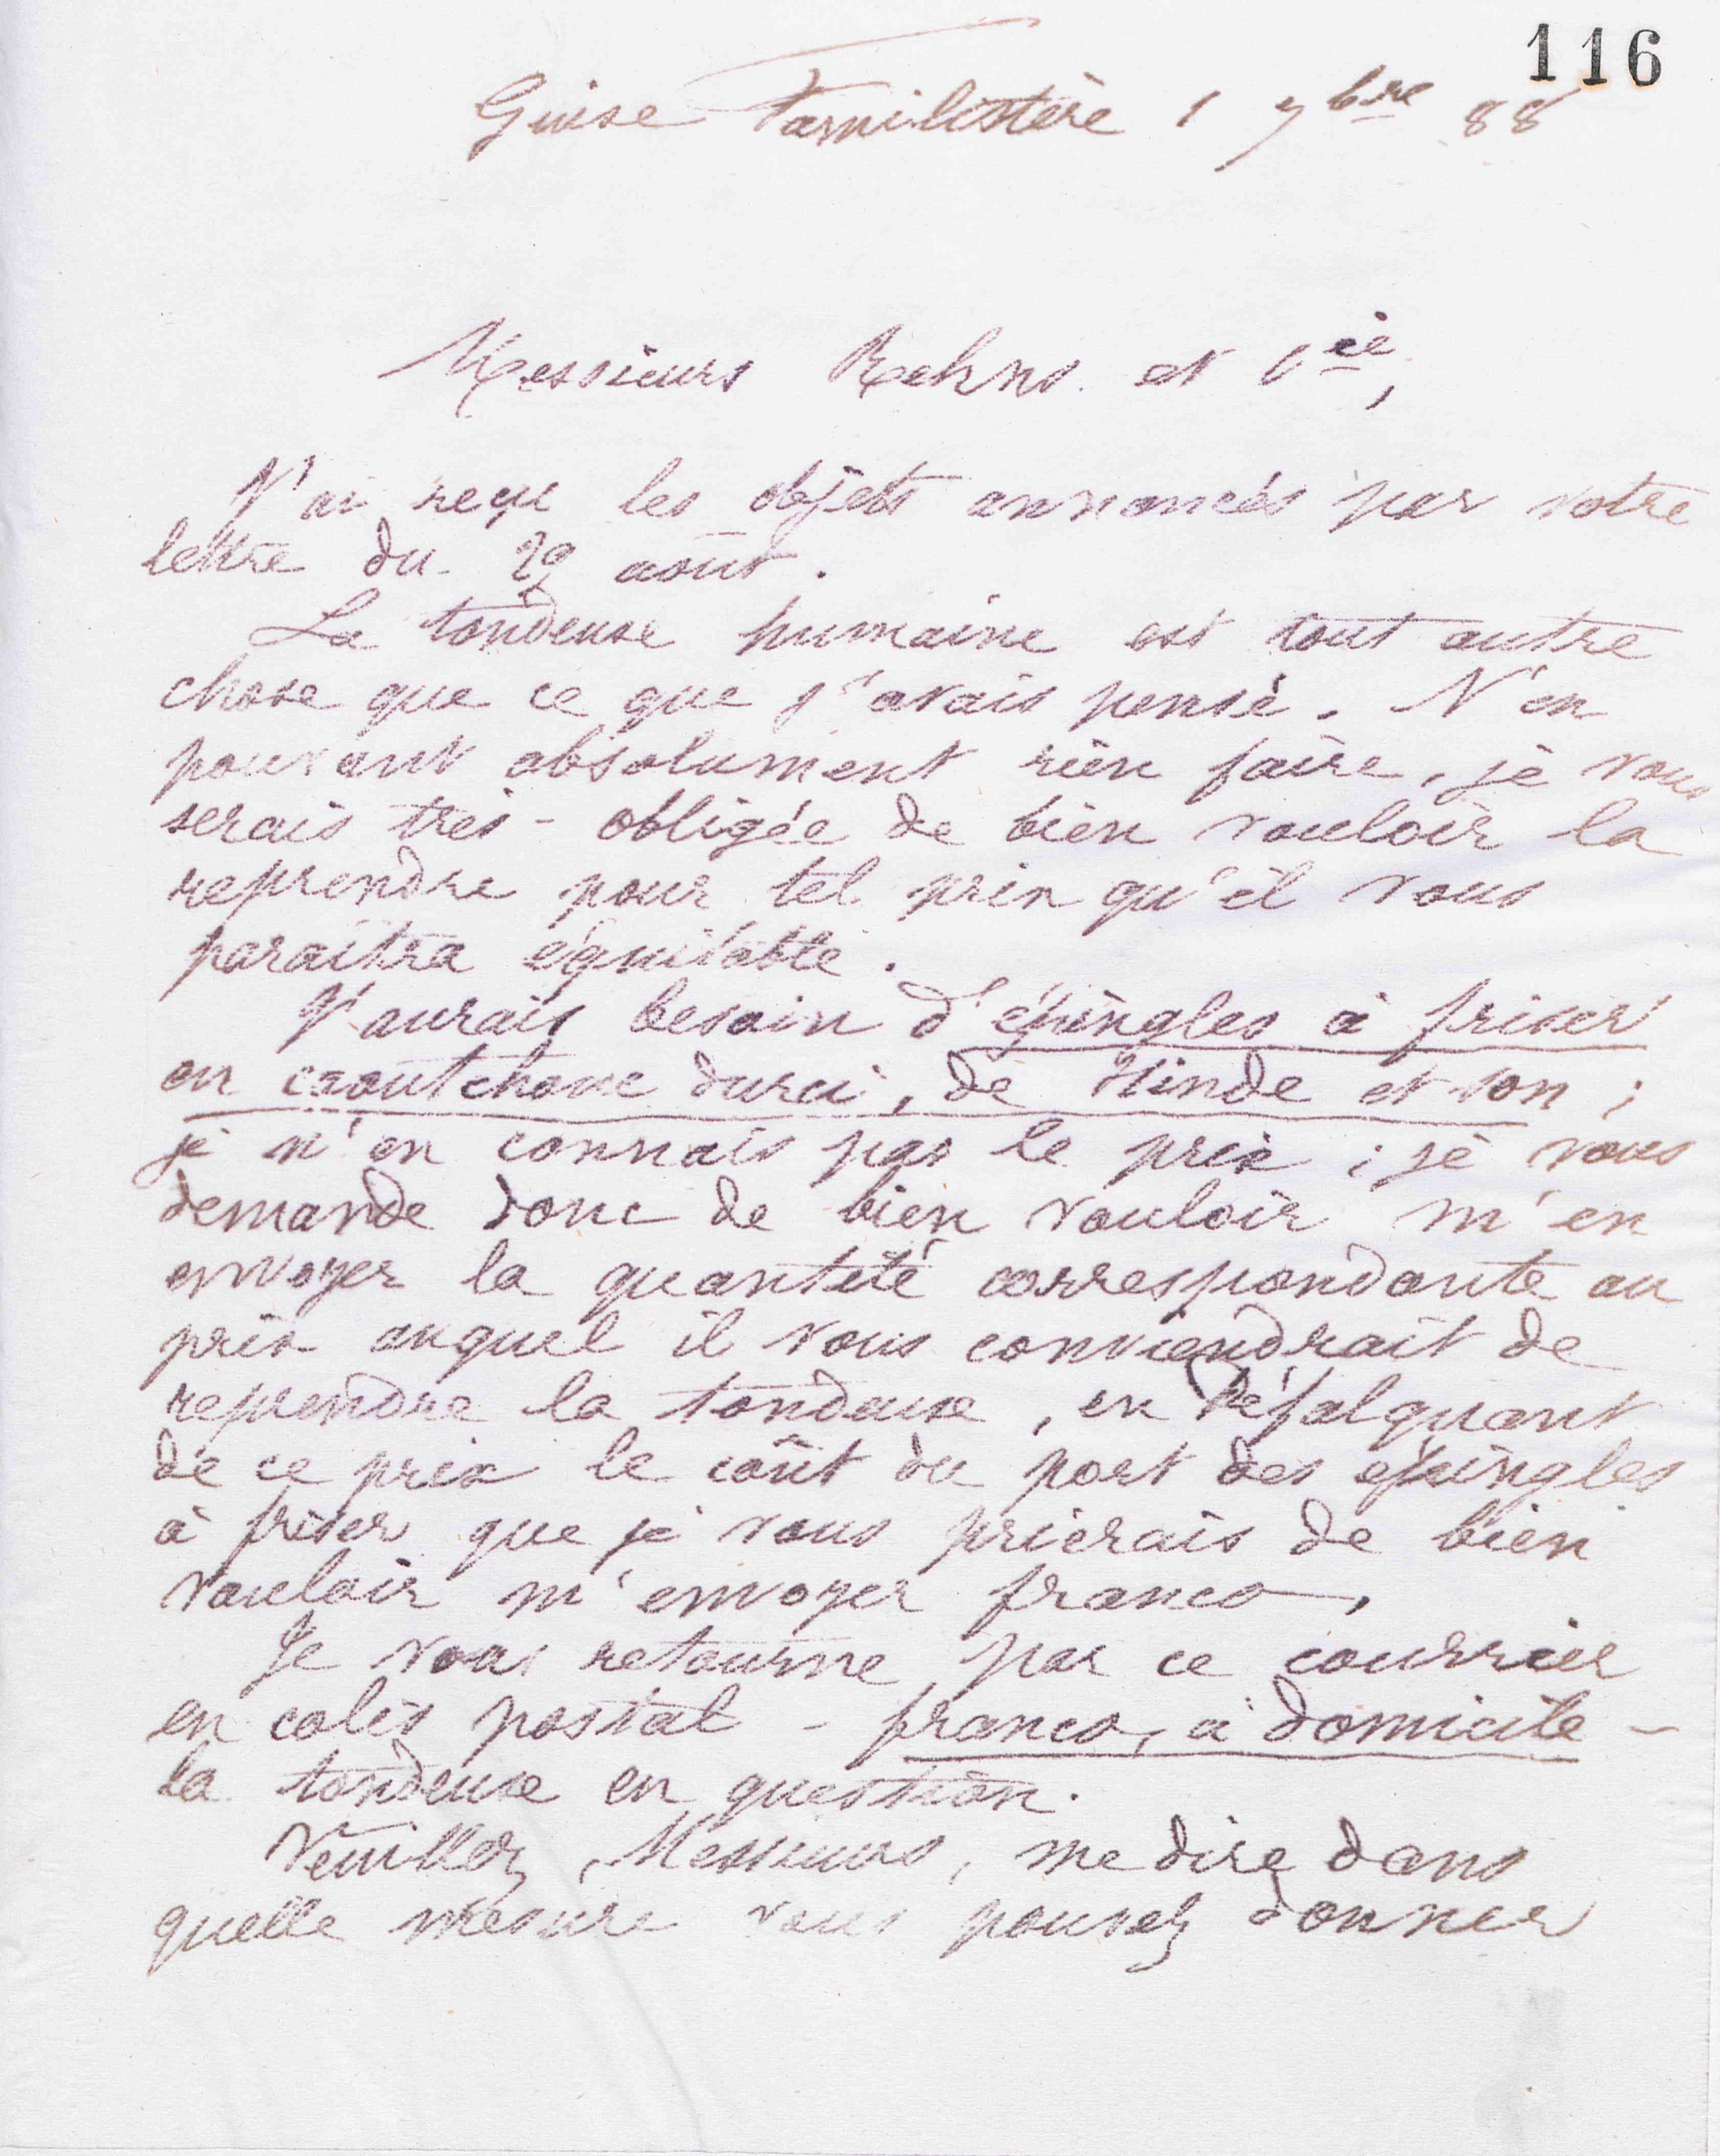 116
Guise Familistère 1 7bre 88
Messieurs Rehns et Cie,
J'ai reçu les objets annoncés par votre
lettre du 29 août.
La tondeuse humaine est tout autre
chose que ce que j'avais pensé. N'en
pouvant absolument rien faire, je vous
serais très-obligée de bien vouloir la
reprendre pour tel prix qu'il vous
paraîtra équitable.
J'aurais besoin d'épingles à friser
en caoutchouc durci, de Hinde et son ;
je n'en connais pas le prix ; je vous
demande donc de bien vouloir m'en
envoyer la quantité correspondante au
prix auquel il vous conviendrait de
reprendre la tondeuse, en défalquant
de ce prix le coût du port des épingles
à friser que je vous prierais de bien
vouloir m'envoyer franco.
Je vous retourne par ce courrier
en colis postal - franco, à domicile -
la tondeuse en question.
Veuillez, Messieurs, me dire dans
quelle mesure vous pouvez donner